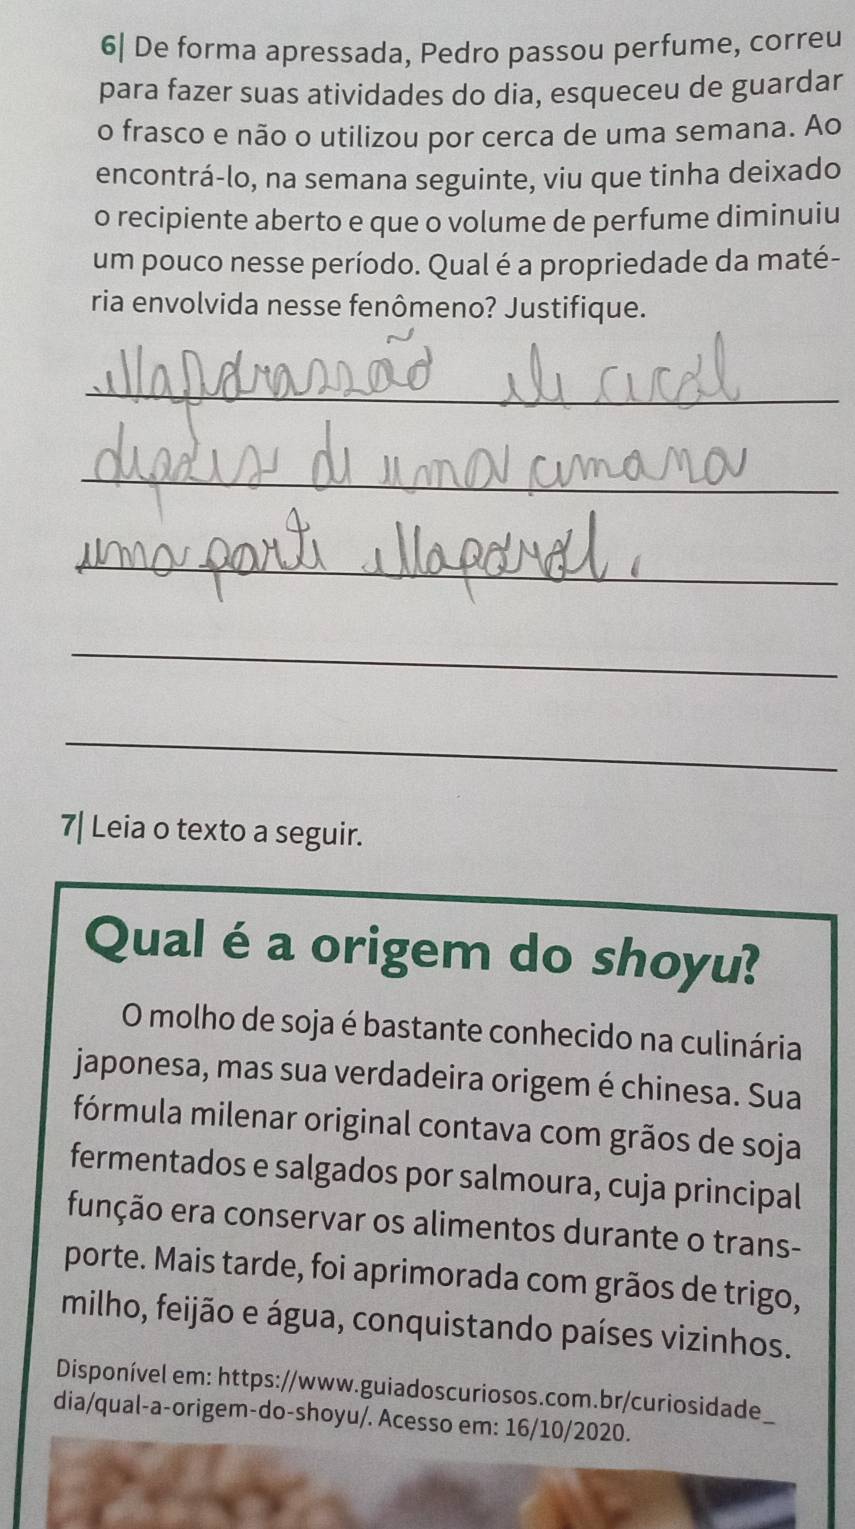 6| De forma apressada, Pedro passou perfume, correu
para fazer suas atividades do dia, esqueceu de guardar
o frasco e não o utilizou por cerca de uma semana. Ao
encontrá-lo, na semana seguinte, viu que tinha deixado
o recipiente aberto e que o volume de perfume diminuiu
um pouco nesse período. Qual é a propriedade da maté-
ria envolvida nesse fenômeno? Justifique.
di uma
uma parti
7| Leia o texto a seguir.
Qual é a origem do shoyu?
O molho de soja é bastante conhecido na culinária
japonesa, mas sua verdadeira origem é chinesa. Sua
fórmula milenar original contava com grãos de soja
fermentados e salgados por salmoura, cuja principal
função era conservar os alimentos durante o trans-
porte. Mais tarde, foi aprimorada com grãos de trigo,
milho, feijão e água, conquistando países vizinhos.
Disponível em: https://www.guiadoscuriosos.com.br/curiosidade_
dia/qual-a-origem-do-shoyu/. Acesso em: 16/10/2020.